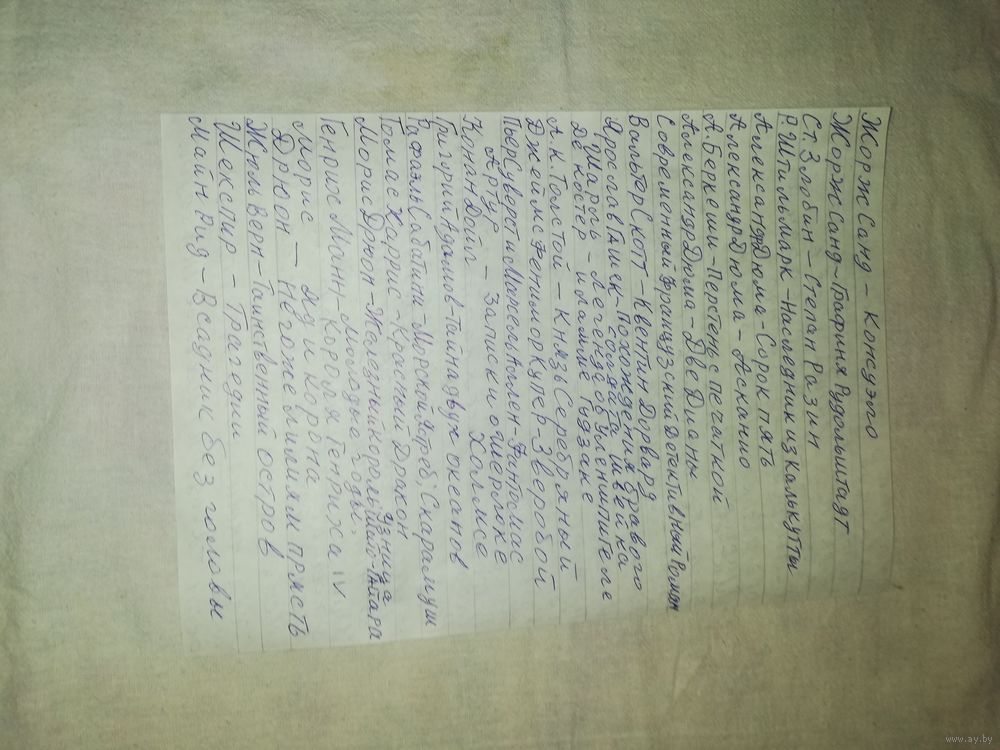 Жорж Санд - Консуэло
Жорж Санд - Графиня Рудольштадт
Ст. Злобин - Степан Разин
Р. Штильмарк - Наследник из Калькутты
Александр Дюма - Сорок пять
Александр Дюма - Асканио
А. Беркеши - Перстень с печаткой
Александр Дюма - Две Дианы
Современный французский детективный роман
Вальтер Скотт - Квентин Дорвард
Ярослав Гашек - Похождения бравого
солдата Швейка
Шарль - Легенда об Уленшпигеле
Де Костер и Ламме Гудзаке
А.К. Толстой - Князь Серебряный
Джеймс Фенимор Купер - Зверобой
Пьер Сувестр и Марсель Аллен - Фантомас
Конан Дойл - Записки о Шерлоке
Артур Холмсе
Григорий Адамов - Тайна двух океанов
Рафаэль Сабатини - Морской ястреб, Скарамуш
Томас Харрис - Красный Дракон
Морис Дрюон - Железный король, Узница Шато-Гайара
Генрих Манн - Молодые годы
короля Генриха IV
Морис - Яд и корона
Дрюон - Негоже лилиям прясть
Жюль Верн - Таинственный остров
Шекспир - Трагедии
Майн Рид - Всадник без головы
www.ay.by